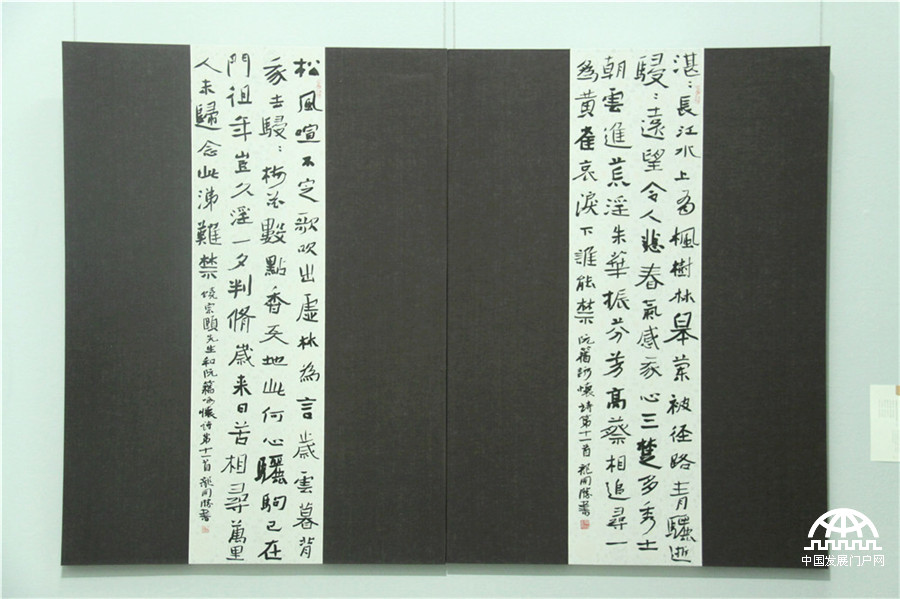 湛:長江水上有楓樹林皋蘭被径路青驪逝
駸:遠望令人悲春氣感我心三楚多秀士
朝雲進荒淫朱華振芬芳高蔡相追尋一
為黃雀哀淚下誰能禁 阮籍詠懷詩第十一首 龍開勝書
松風喧不定歌吹出虛林為言歲雲暮背
我去駸:梅花數點香天地此何心驪駒已在
門徂年豈久淫一夕判脩歲来日苦相尋萬里
人未歸念此涕難禁 饒宗頤先生和阮籍咏懷詩第十一首 龍開勝書
中国发展门户网